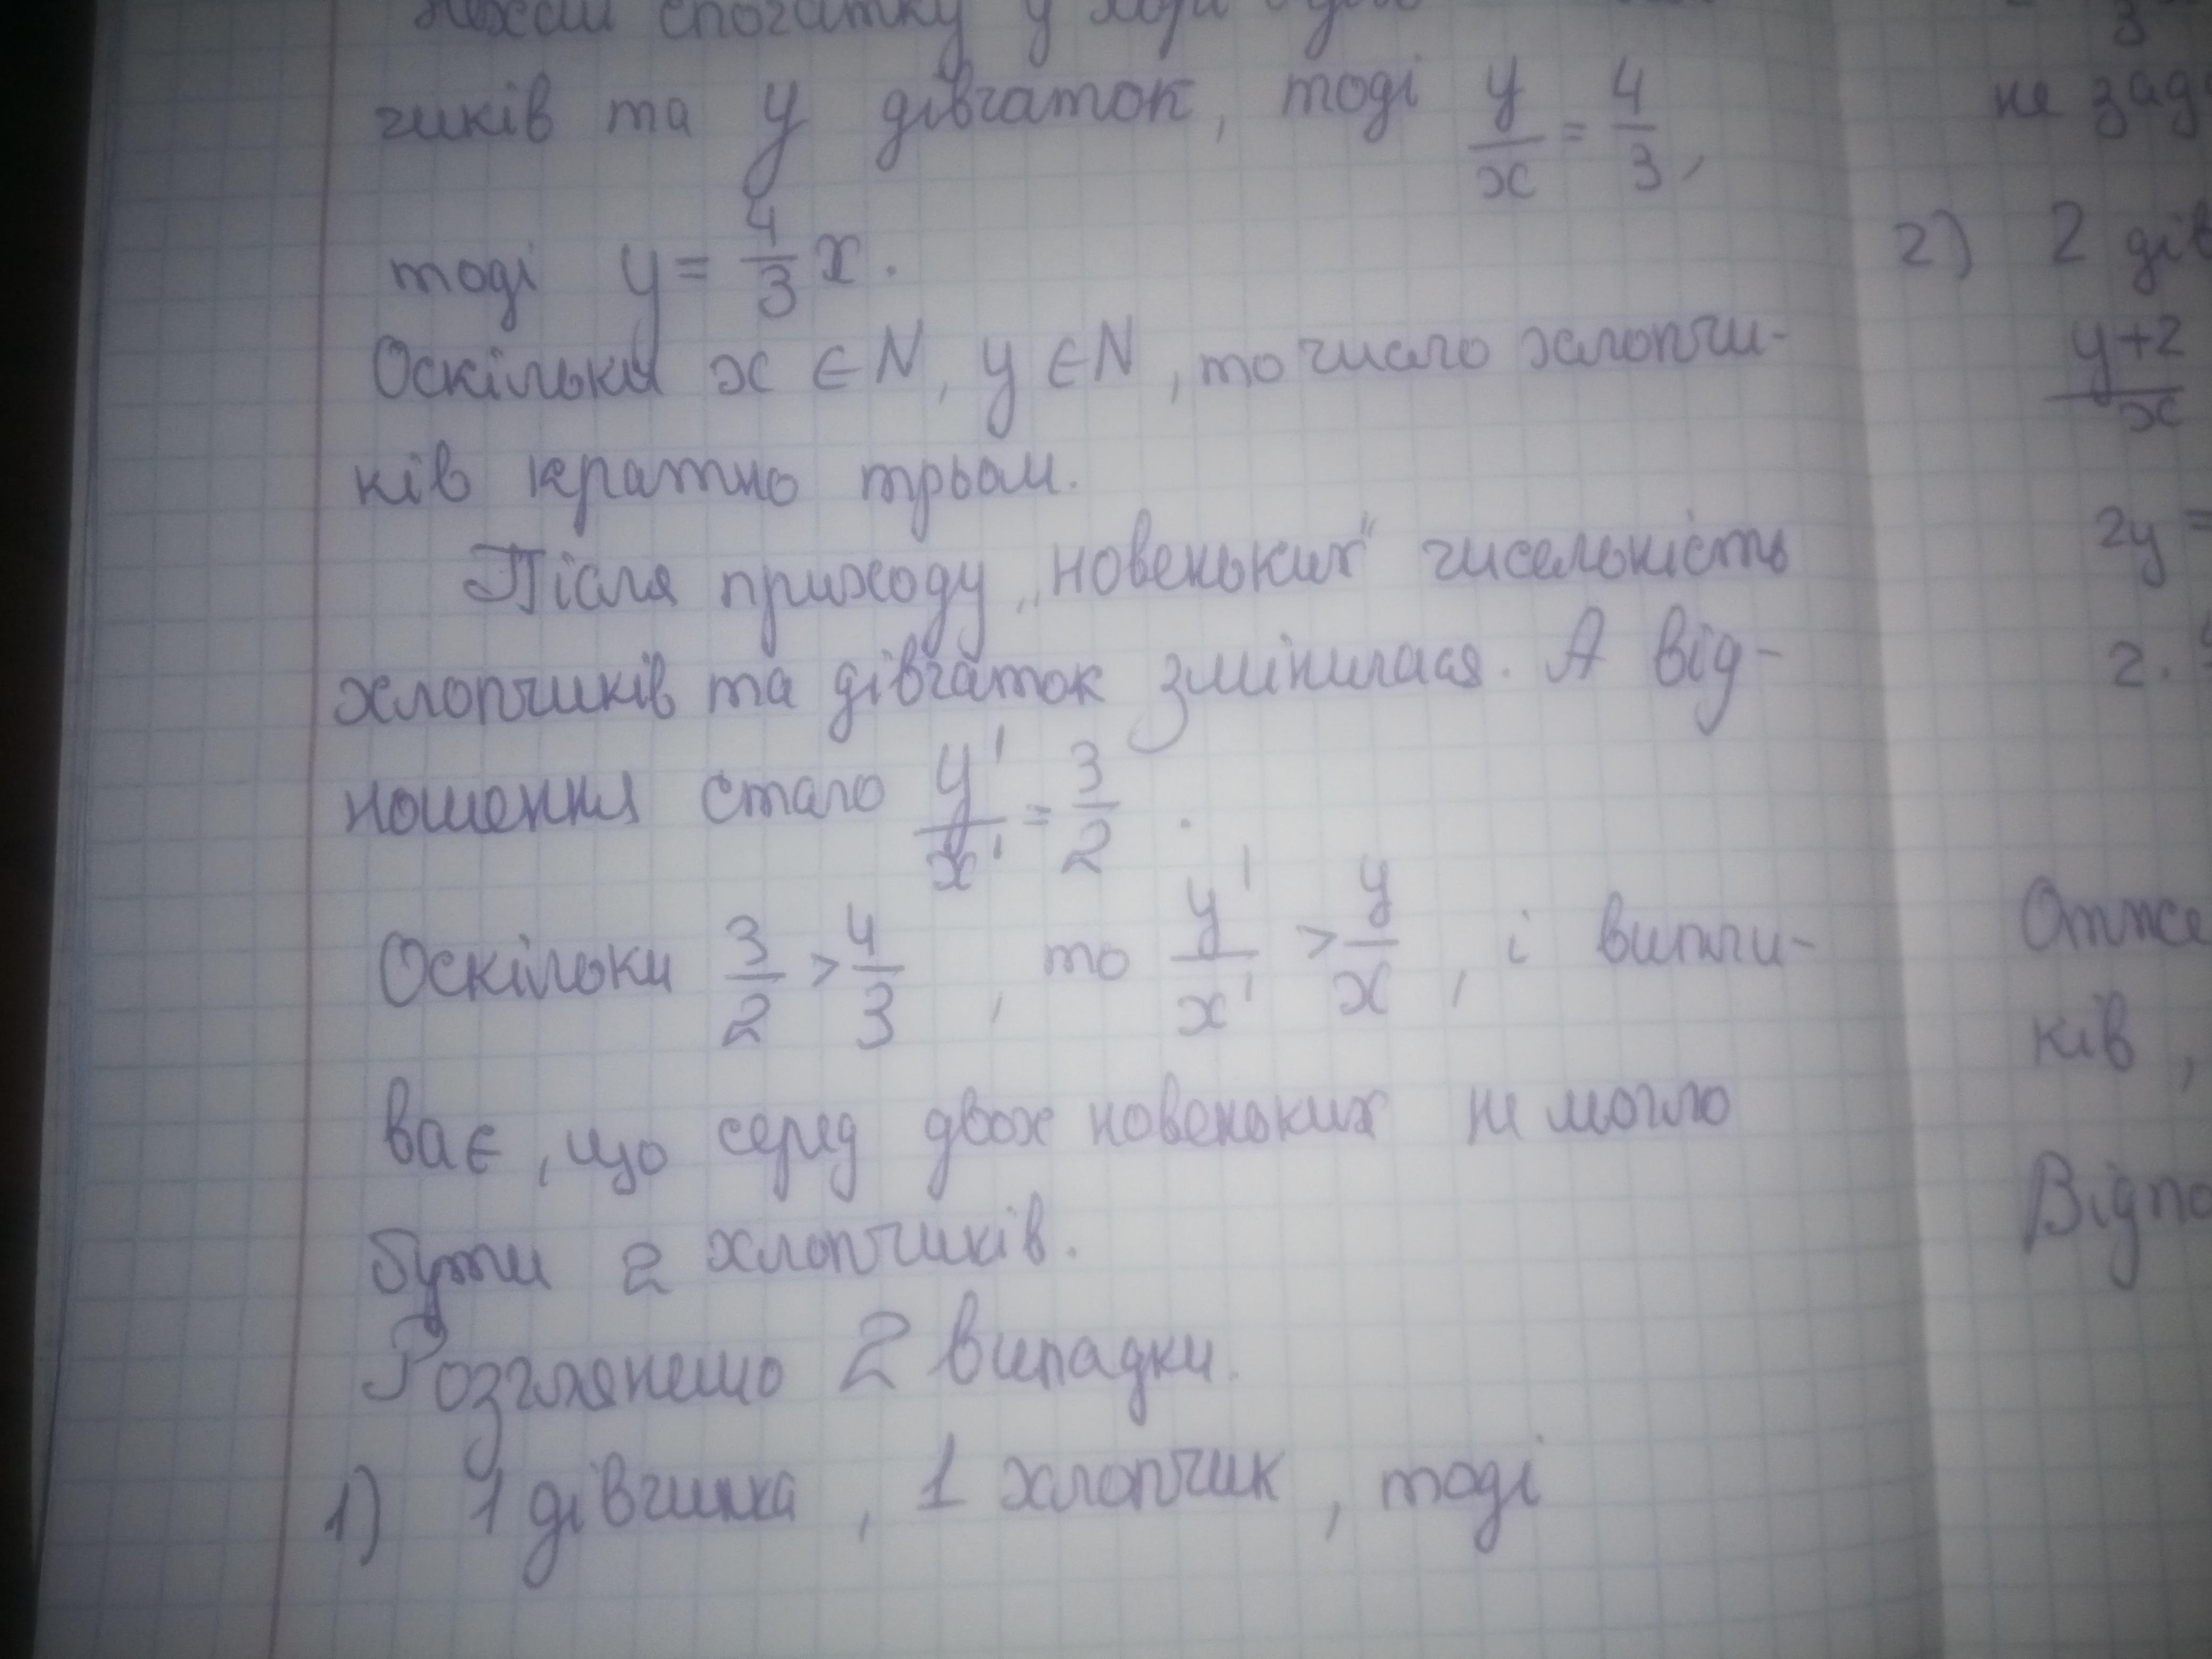 спочатку у
чиків та y дівчаток, тоді y/x = 4/3,
тоді y = 4/3 x.
Оскільки x ∈ N, y ∈ N, то число хлопчи-
ків кратно трьом.
Після приходу „новеньких" чисельність
хлопчиків та дівчаток змінилася. А від-
ношення стало y'/x' = 3/2.
Оскільки 3/2 > 4/3, то y'/x' > y/x, і випли-
ває, що серед двох новеньких не могло
бути 2 хлопчиків.
Розглянемо 2 випадки.
1) 1 дівчинка, 1 хлопчик, тоді
3
не зад
2) 2 дів
y+2/x
2y =
2.
Отже
ків,
Відпо